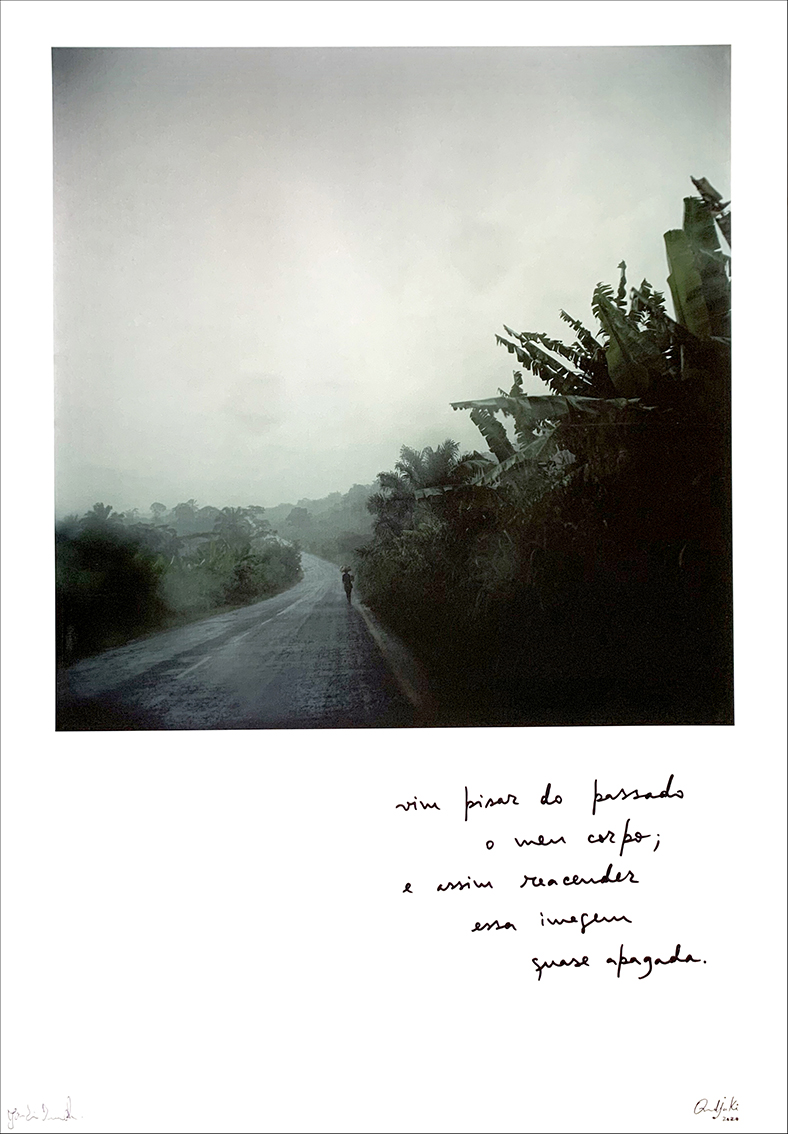 vim pisar do passado
o meu corpo;
e assim reacender
essa imagem
quase apagada.
Ondjaki
2020